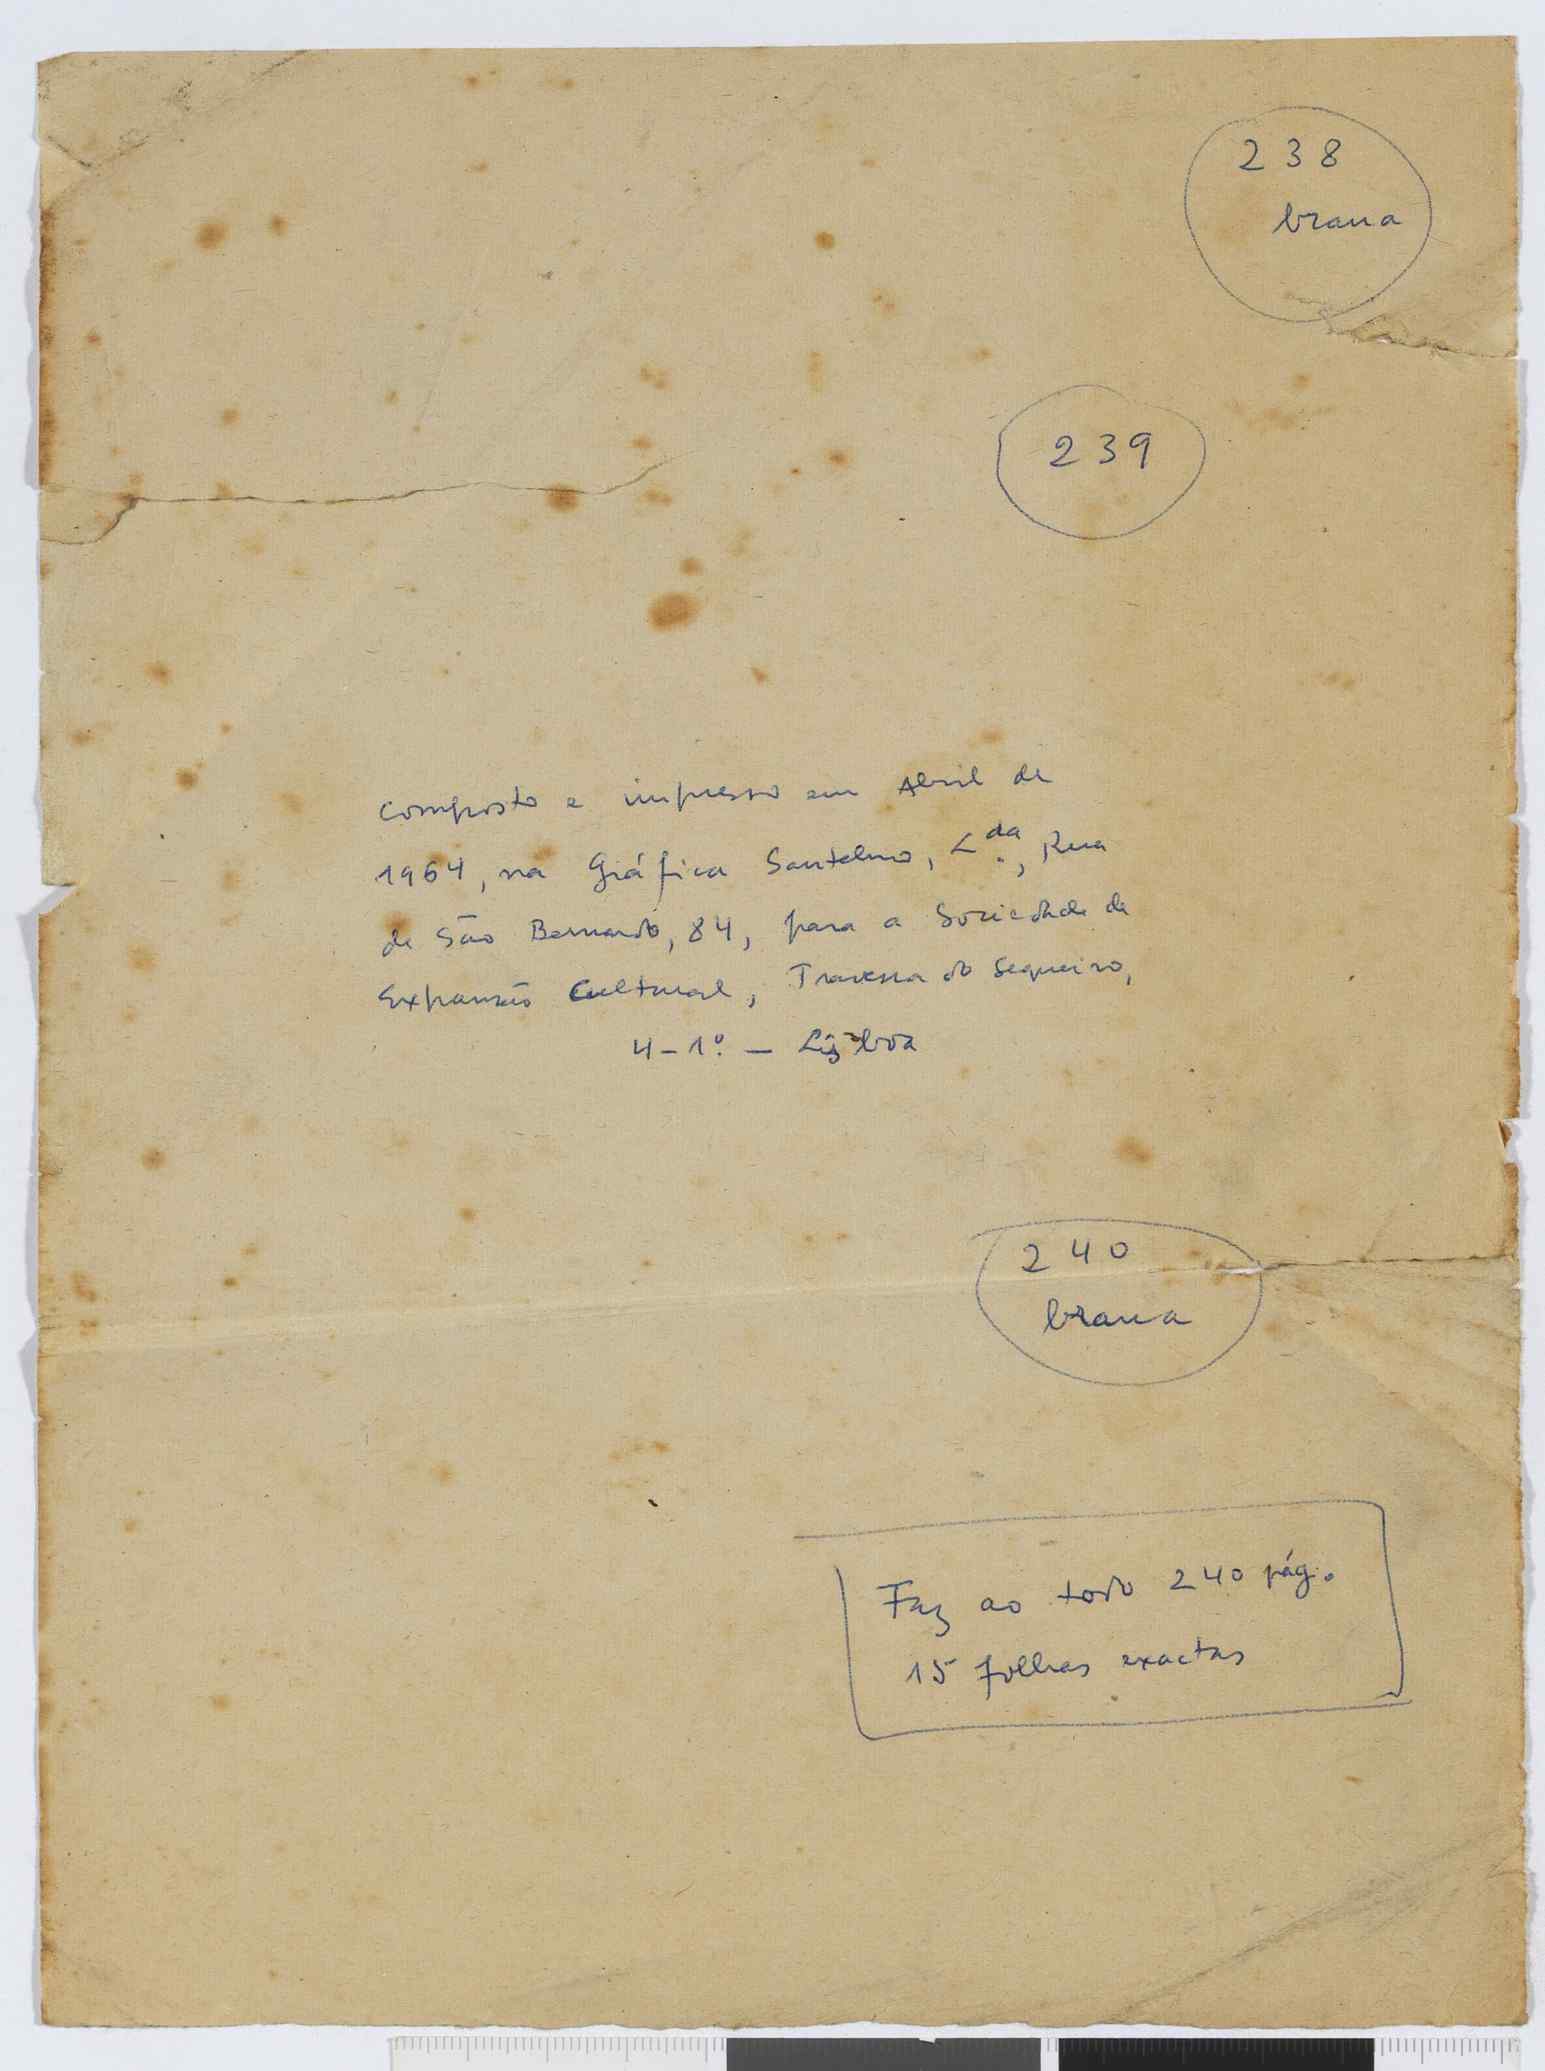 238
branca
239
Composto e impresso em Abril de
1964, na Gráfica Santelmo, L.da, Rua
de São Bernardo, 84, para a Sociedade de
Expansão Cultural, Travessa do Sequeiro,
4-1º. — Lisboa
240
branca
Faz ao todo 240 pág.
15 folhas exactas